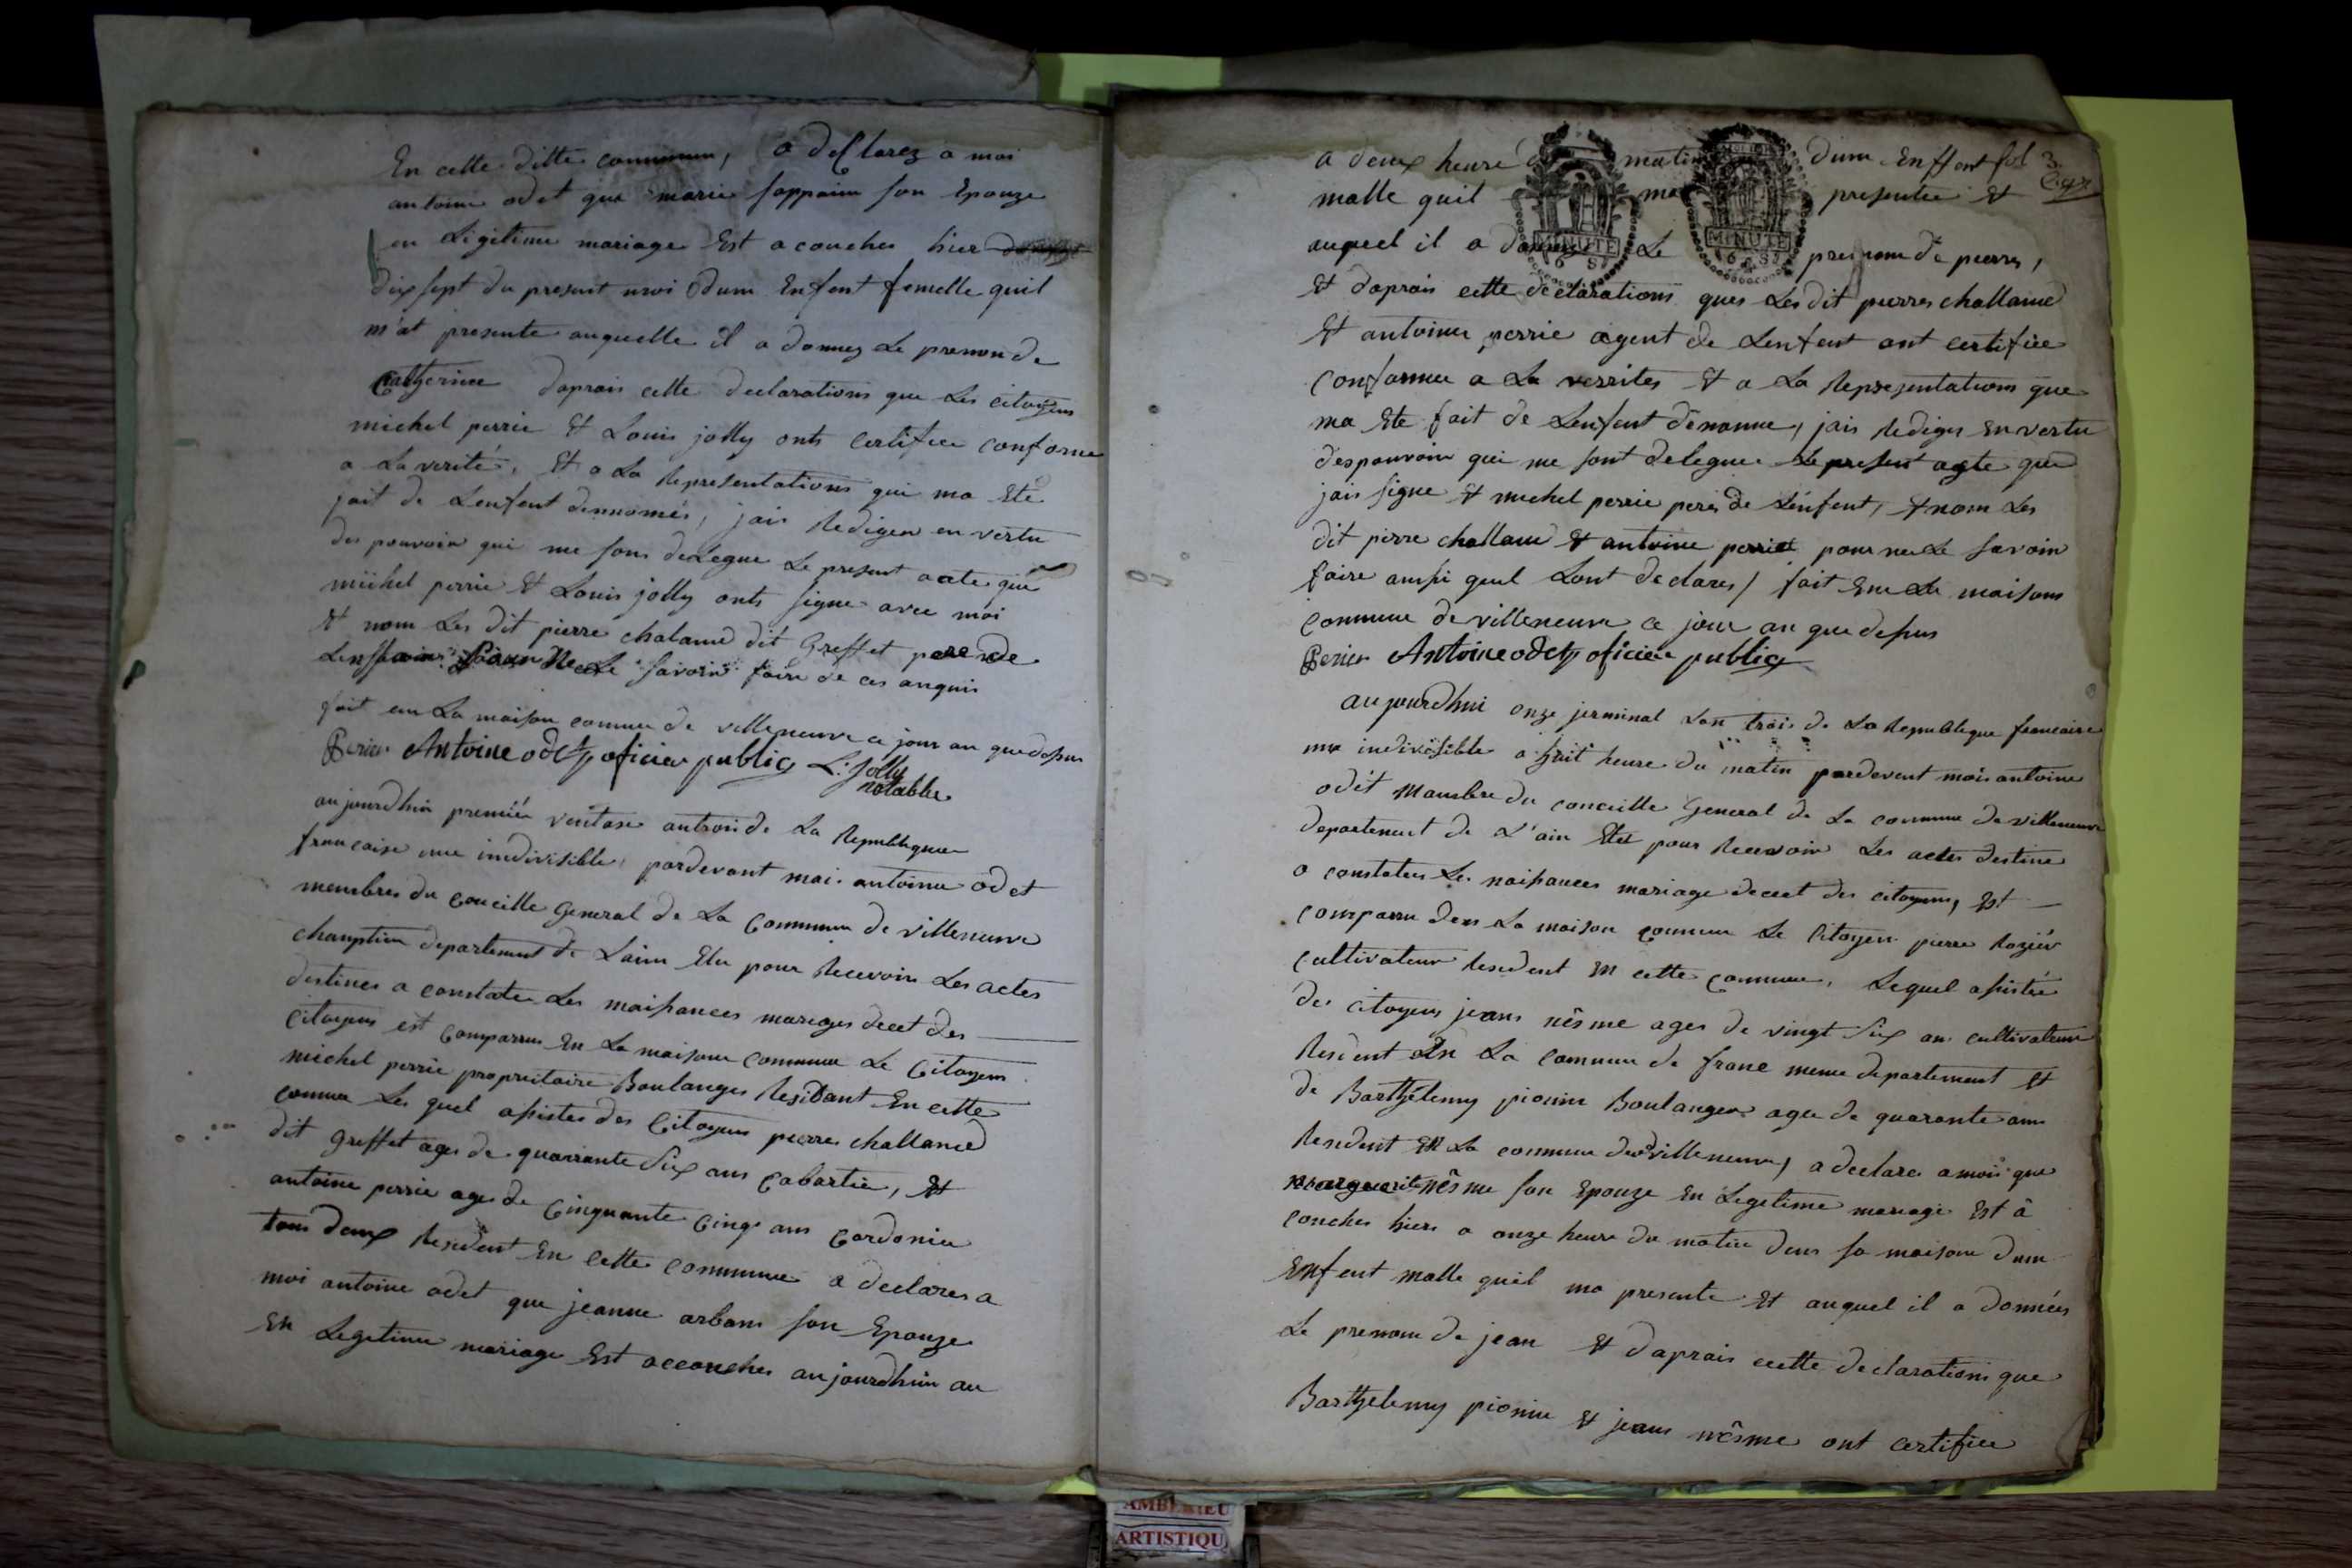 En cette ditte commun, a declarez a moi
antoine odet que marie sappaim son Epouze
en Légitime mariage Est a coucher hier
dix sept du present moi dum Enfent femelle quil
m'at presente auquelle il a donnez Le prenon de
Catherine daprais cette declarations que Les citoyens
michel perrie Et Louis jolly onts certifiee conforme
a La verité, Et a La Representations qui ma Eté
fait de Lenfent dennomés, jais Rediger en vertu
des pouvoir qui me sons delegue Le present acte que
michel perrie Et Louis jolly onts signe avec moi
Et nom Les dit pierre chalamed dit Greffet pere de
Lenfant pour ne Le savoir faire de ces anquis
fait en La maison comune de villeneuve ce jour an que desus
Perier Antoine odet oficier public L: Jolly
notable
aujourdhui premiér ventose antroi de La Republique
francaise une indivisible, pardevant moi antoine odet
membres du Concille General de La Commune de villeneuve
champtien departement de Lain Elu pour Recevoir Les actes
destinés a constater Les naissances mariages decet des
Citoyens est comparru En La maisone commune Le Citoyen
michel perrie propreitaire Boulanger Residant En cette
comune Les quel assistes des Citoyens pierre challamed
dit greffet ages de quarrante six ans Cabartie, Et
antoine perrie ages de Cinquante Cinq ans Cordonie
tous deux Resident En cette commune a declares a
moi antoine odet que jeanne arbans son Epouze
En Legetime mariage Est accoucher aujourdhui au
a deux heure du matin dum Enffent fol 3
malle quil ma presenter Et
auquel il a donnez Le prennom de pierre,
Et daprais cette declarations ques Les dit pierre challamed
Et antoine perrie agent de Lenfent ont certifiee
conforme a La verrites Et a La Representations que
ma Ete fait de Lenfent dénomme, jais Rediger En vertu
des pouvoir qui me sont delegue Le present acte que
jais signe Et michel perrie peres de Lénfent, Et nom Les
dit pierre challamed Et antoine perrie pour ne Le savoir
faire ainssi quil Lont declares, fait En La maisons
Commune de villeneuve ce jour an que desus
Perier Antoine odet oficier public
aujourdhui onze jerminal Lan trois de La Republique francaise
une indivisible a huit heure du matin pardevent mois antoine
odit Manbre du concielle General de La commune de villeneuve
departement de L'ain Elet pour Recevoir Les actes destine
a constater Les naissances mariage decet des citoyens, Est
comparru dens La maison commune Le Citoyen pierre Roziér
cultivateur Resedent En cette Commune, Lequel assistée
des citoyens jeans nésme ages de vingt six an cultivateur
Resident En La commune de frane meme departement Et
de Barthélemy pionin Boulanger agee de quarante ans
Resident En La commune de villeneuve, a declare a mois que
marguerite nésme son Epouze En Legetime mariage Est â
coucher hier a onze heure du matin dens sa maisone dum
Enfent malle quil ma presente Et auquel il a données
Le prenom de jean Et daprais cette declarations que
Barthelemy pionin Et jeans nésme ont certifiee
MINUTE
MINUTE
AMBERIEU
ARTISTIQU